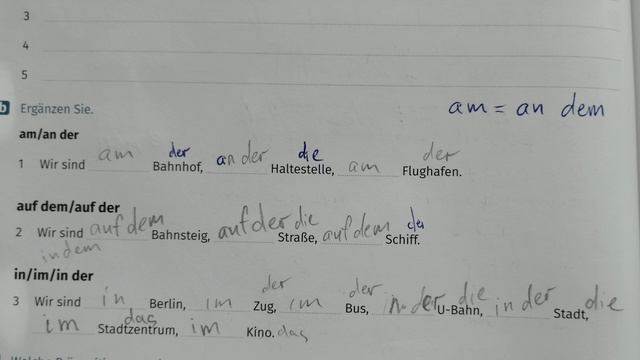 3
4
5
b Ergänzen Sie.
am = an dem
am/an der
am der an der die am der
1 Wir sind Bahnhof, Haltestelle, Flughafen.
auf dem/auf der
auf dem auf der die auf dem
2 Wir sind Bahnsteig, Straße, Schiff.
in dem
in/im/in der
in im der im der in der die in der die
3 Wir sind Berlin, Zug, Bus, U-Bahn, Stadt,
im das im das
Stadtzentrum, Kino.